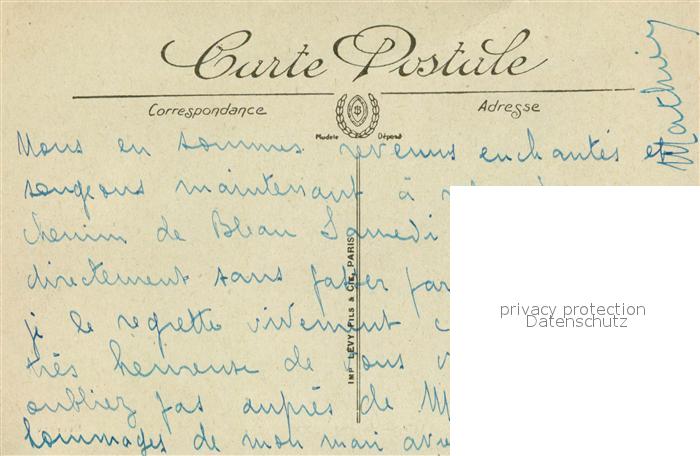 Carte Postale
Correspondance
Adresse
Modèle Déposé
Nous en sommes revenus enchantés et
songeons maintenant à
chemin de Bleau Samedi
directement sans passer par
je le regrette vivement
très heureuse de vous
oubliez pas auprès de
hommages de mon mari
IMP LEVY FILS & CIE, PARIS
privacy protection
Datenschutz